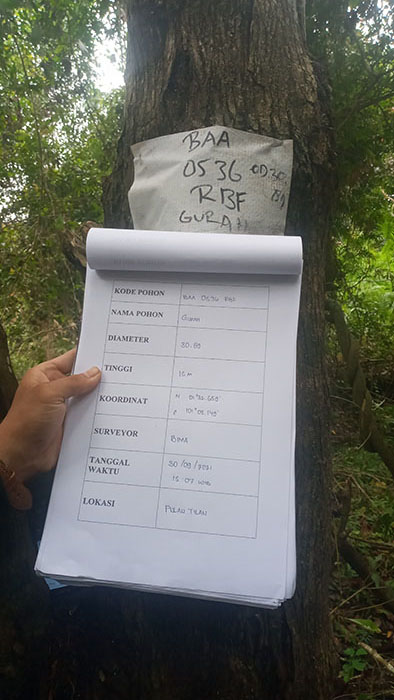 BAA
0536
RBF
GURAH
KODE POHON BAA 0536 RBF
NAMA POHON GURAH
DIAMETER 30.89
TINGGI 15 M
KOORDINAT
SURVEYOR BIMA
TANGGAL WAKTU 30/09/2021
15 07 WIB
LOKASI PULAU TILAN